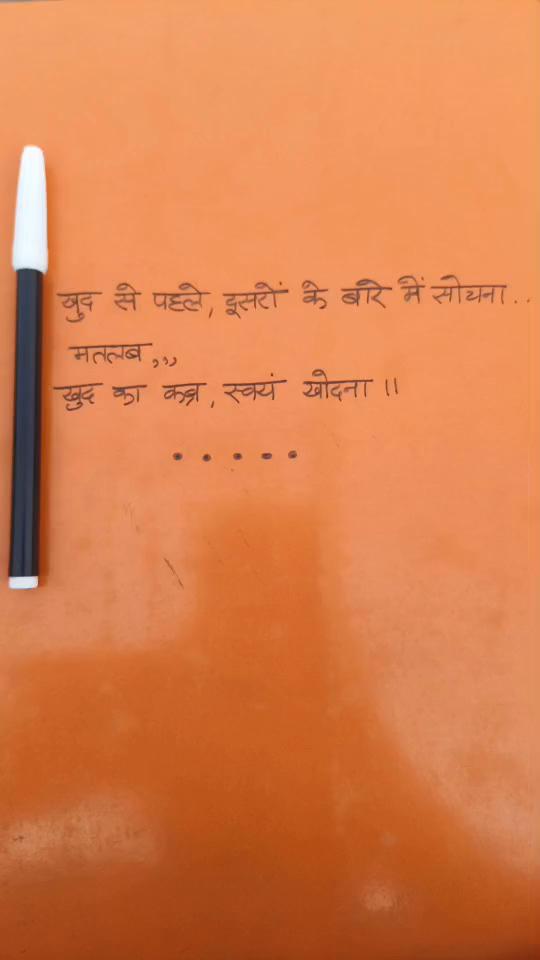 खुद से पहले, दुसरों के बारे में सोचना..
मतलब,,,
खुद का कब्र, स्वयं खोदना ।।
.....